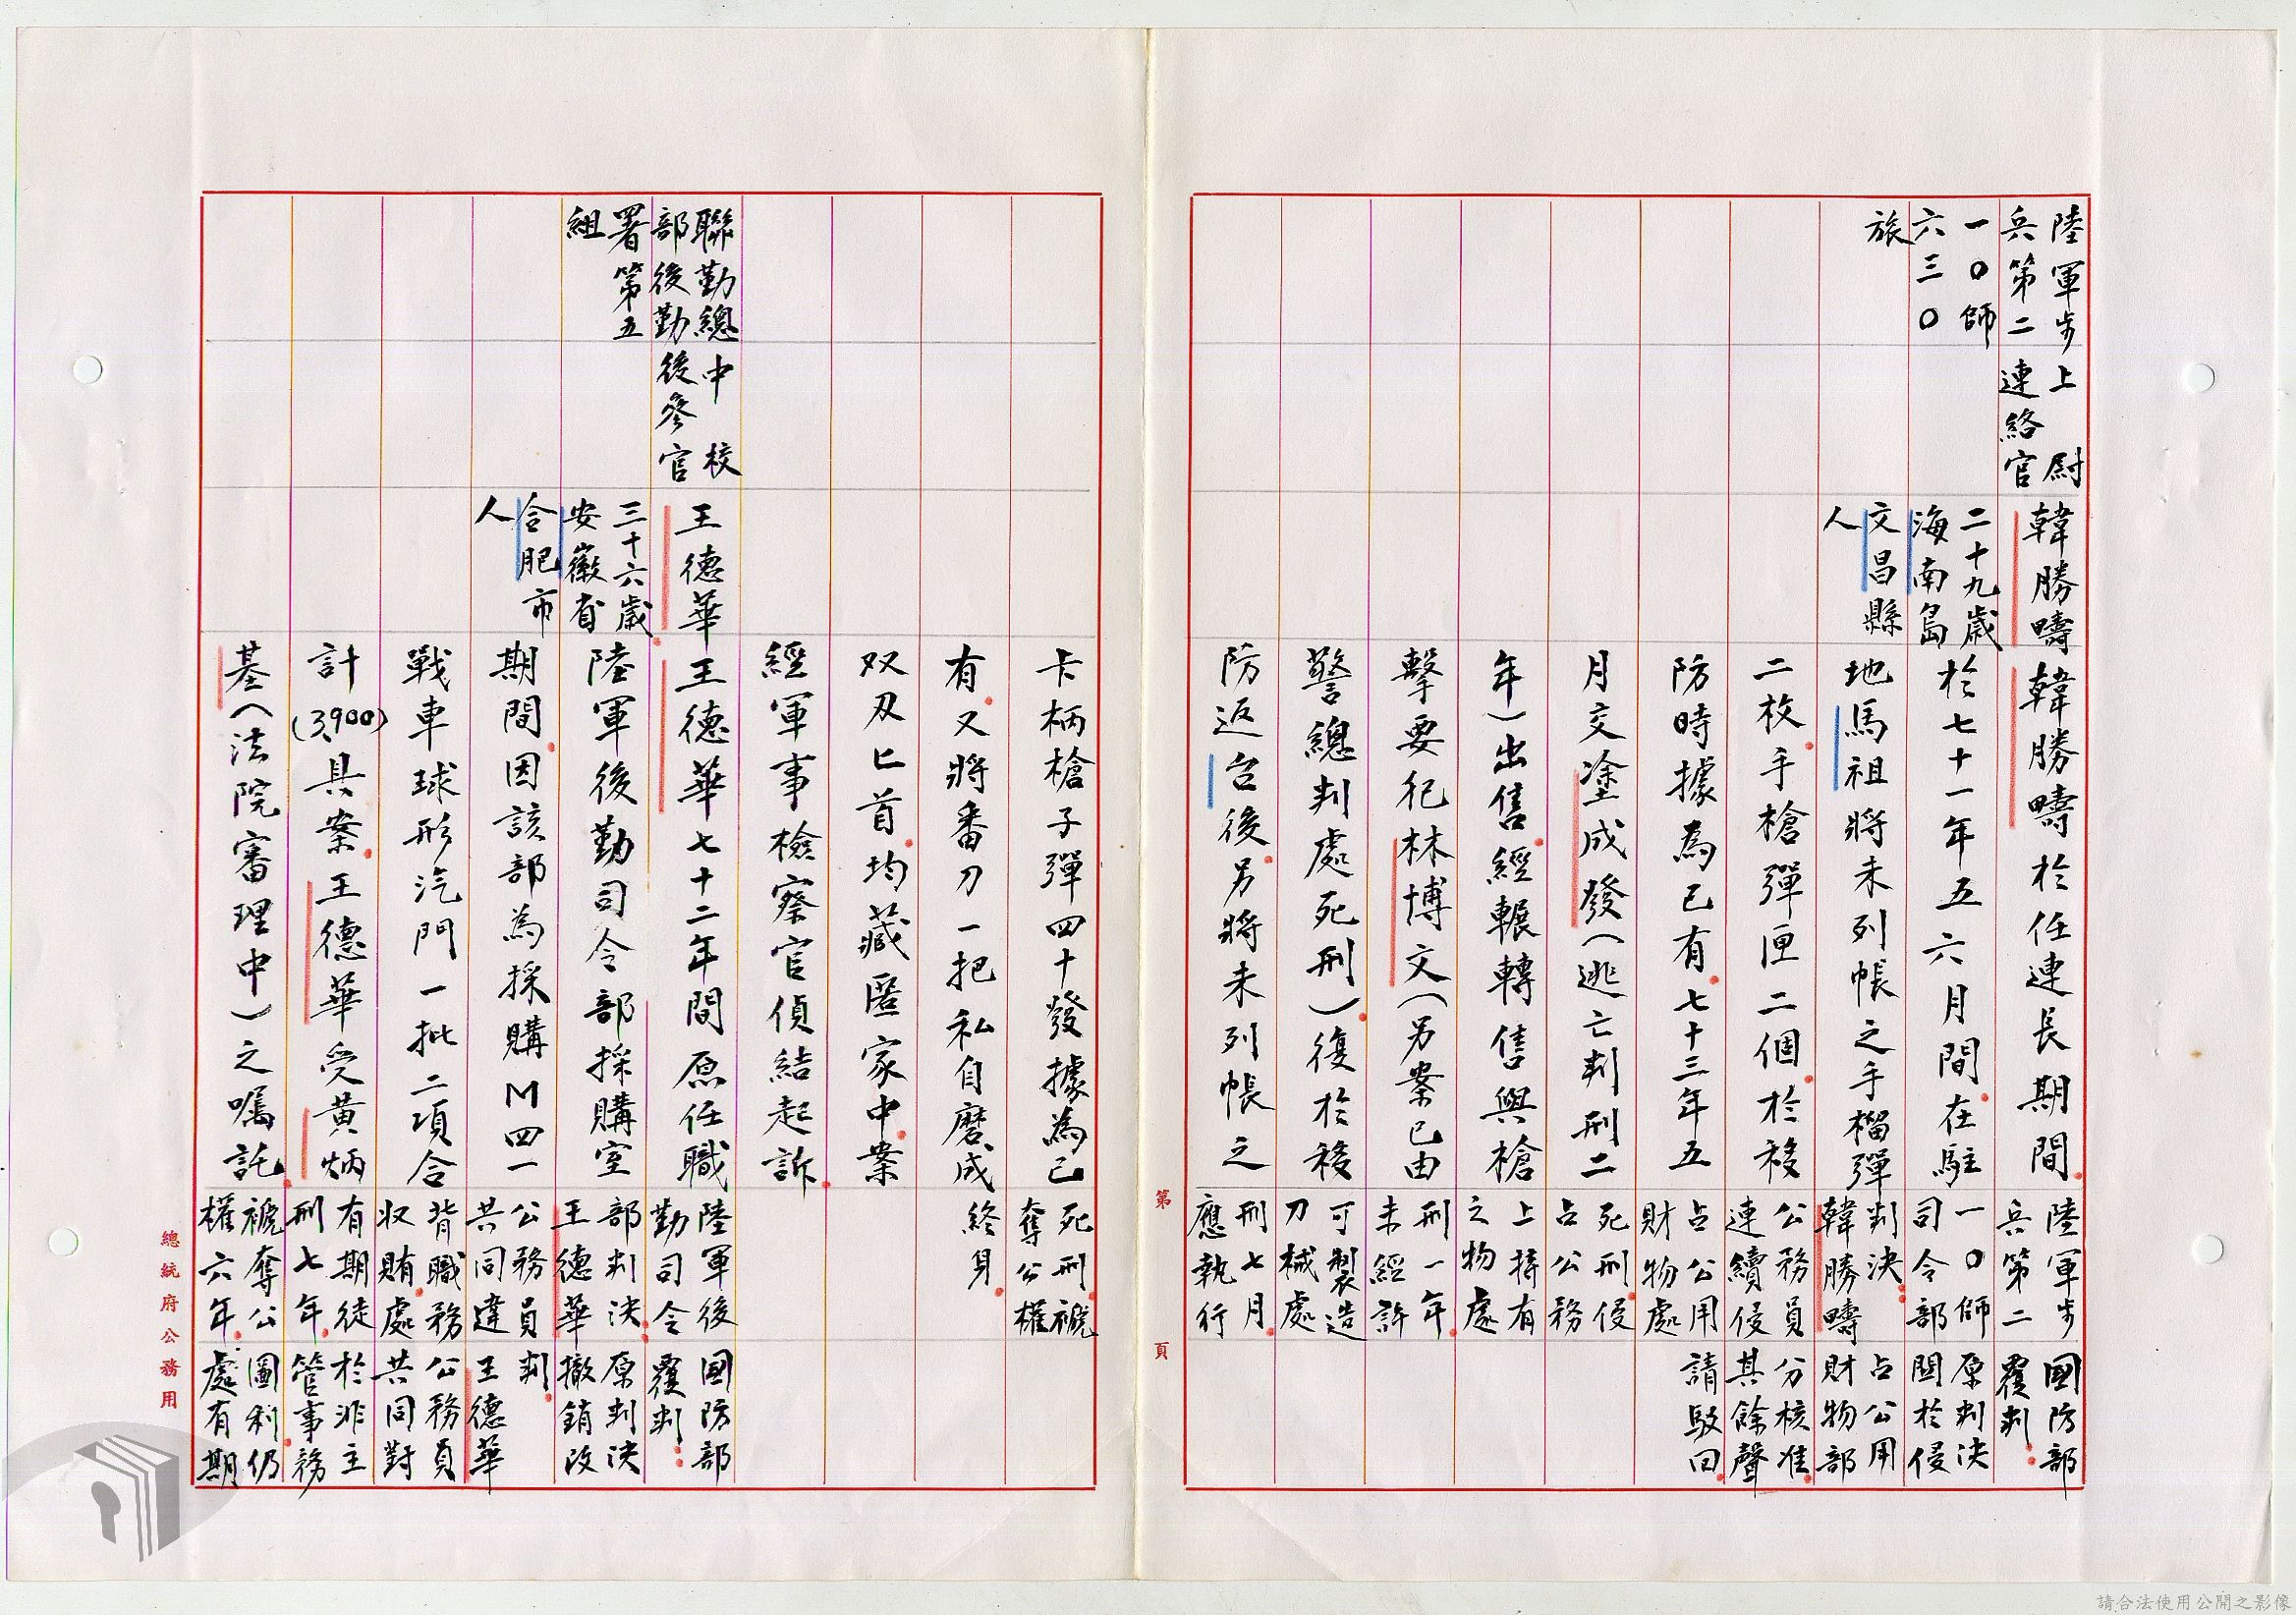 陸軍步
兵第二
一〇師
六三〇
旅
上尉
連絡官
韓勝疇
二十九歲
海南島
文昌縣
人
韓勝疇於任連長期間
於七十一年五六月間在駐
地馬祖將未列帳之手榴彈
二枚手槍彈匣二個於移
防時據為己有七十三年五
月交塗成發(逃亡判刑二
年)出售經輾轉售與槍
擊要犯林博文(另案已由
警總判處死刑)復於移
防返台後另將未列帳之
陸軍步
兵第二
一〇師
司令部
判決
韓勝疇
公務員
連續侵
占公用
財物處
死刑侵
占公務
上持有
之物處
刑一年
未經許
可製造
刀械處
刑七月
應執行
國防部
覆判:
原判決
關於侵
占公用
財物部
分核准
其餘聲
請駁回
第 頁
卡柄槍子彈四十發據為己
有又將番刀一把私自磨成
双刃匕首均藏匿家中案
經軍事檢察官偵結起訴
死刑褫
奪公權
終身
聯勤總
部後勤
署第五
組
中校
後參官
王德華
三十六歲
安徽省
合肥市
人
王德華七十二年間原任職
陸軍後勤司令部採購室
期間因該部為採購M四一
戰車球形汽門一批二項合
計(3,900)具案王德華受黃炳
基(法院審理中)之囑託
陸軍後
勤司令
部判決
王德華
公務員
共同違
背職務
收賄處
有期徒
刑七年
褫奪公
權六年
國防部
覆判:
原判決
撤銷改
判
王德華
公務員
共同對
於非主
管事務
圖利仍
處有期
總統府公務用
請合法使用公開之影像